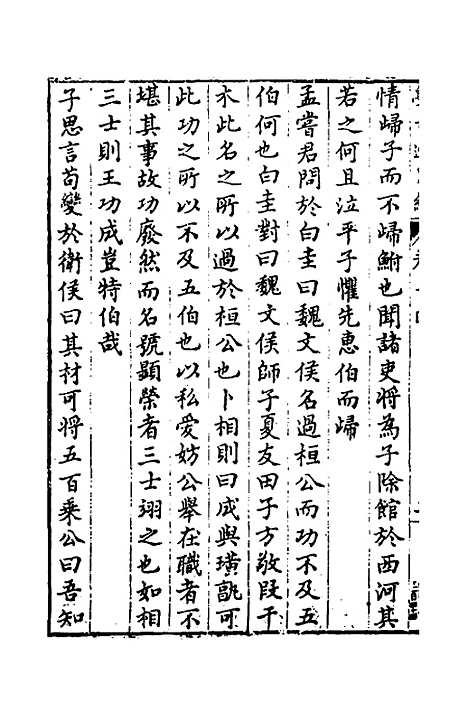 情歸子而不歸鮒也聞諸吏將為子除館於西河其
若之何且泣平子懼先惠伯而歸
孟嘗君問於白圭曰魏文侯名過桓公而功不及五
伯何也白圭對曰魏文侯師子夏友田子方敬段干
木此名之所以過於桓公也卜相則曰成與璜孰可
此功之所以不及五伯也以私愛妨公舉在職者不
堪其事故功廢然而名號顯榮者三士翊之也如相
三士則王功成豈特伯哉
子思言苟變於衛侯曰其材可將五百乘公曰吾知